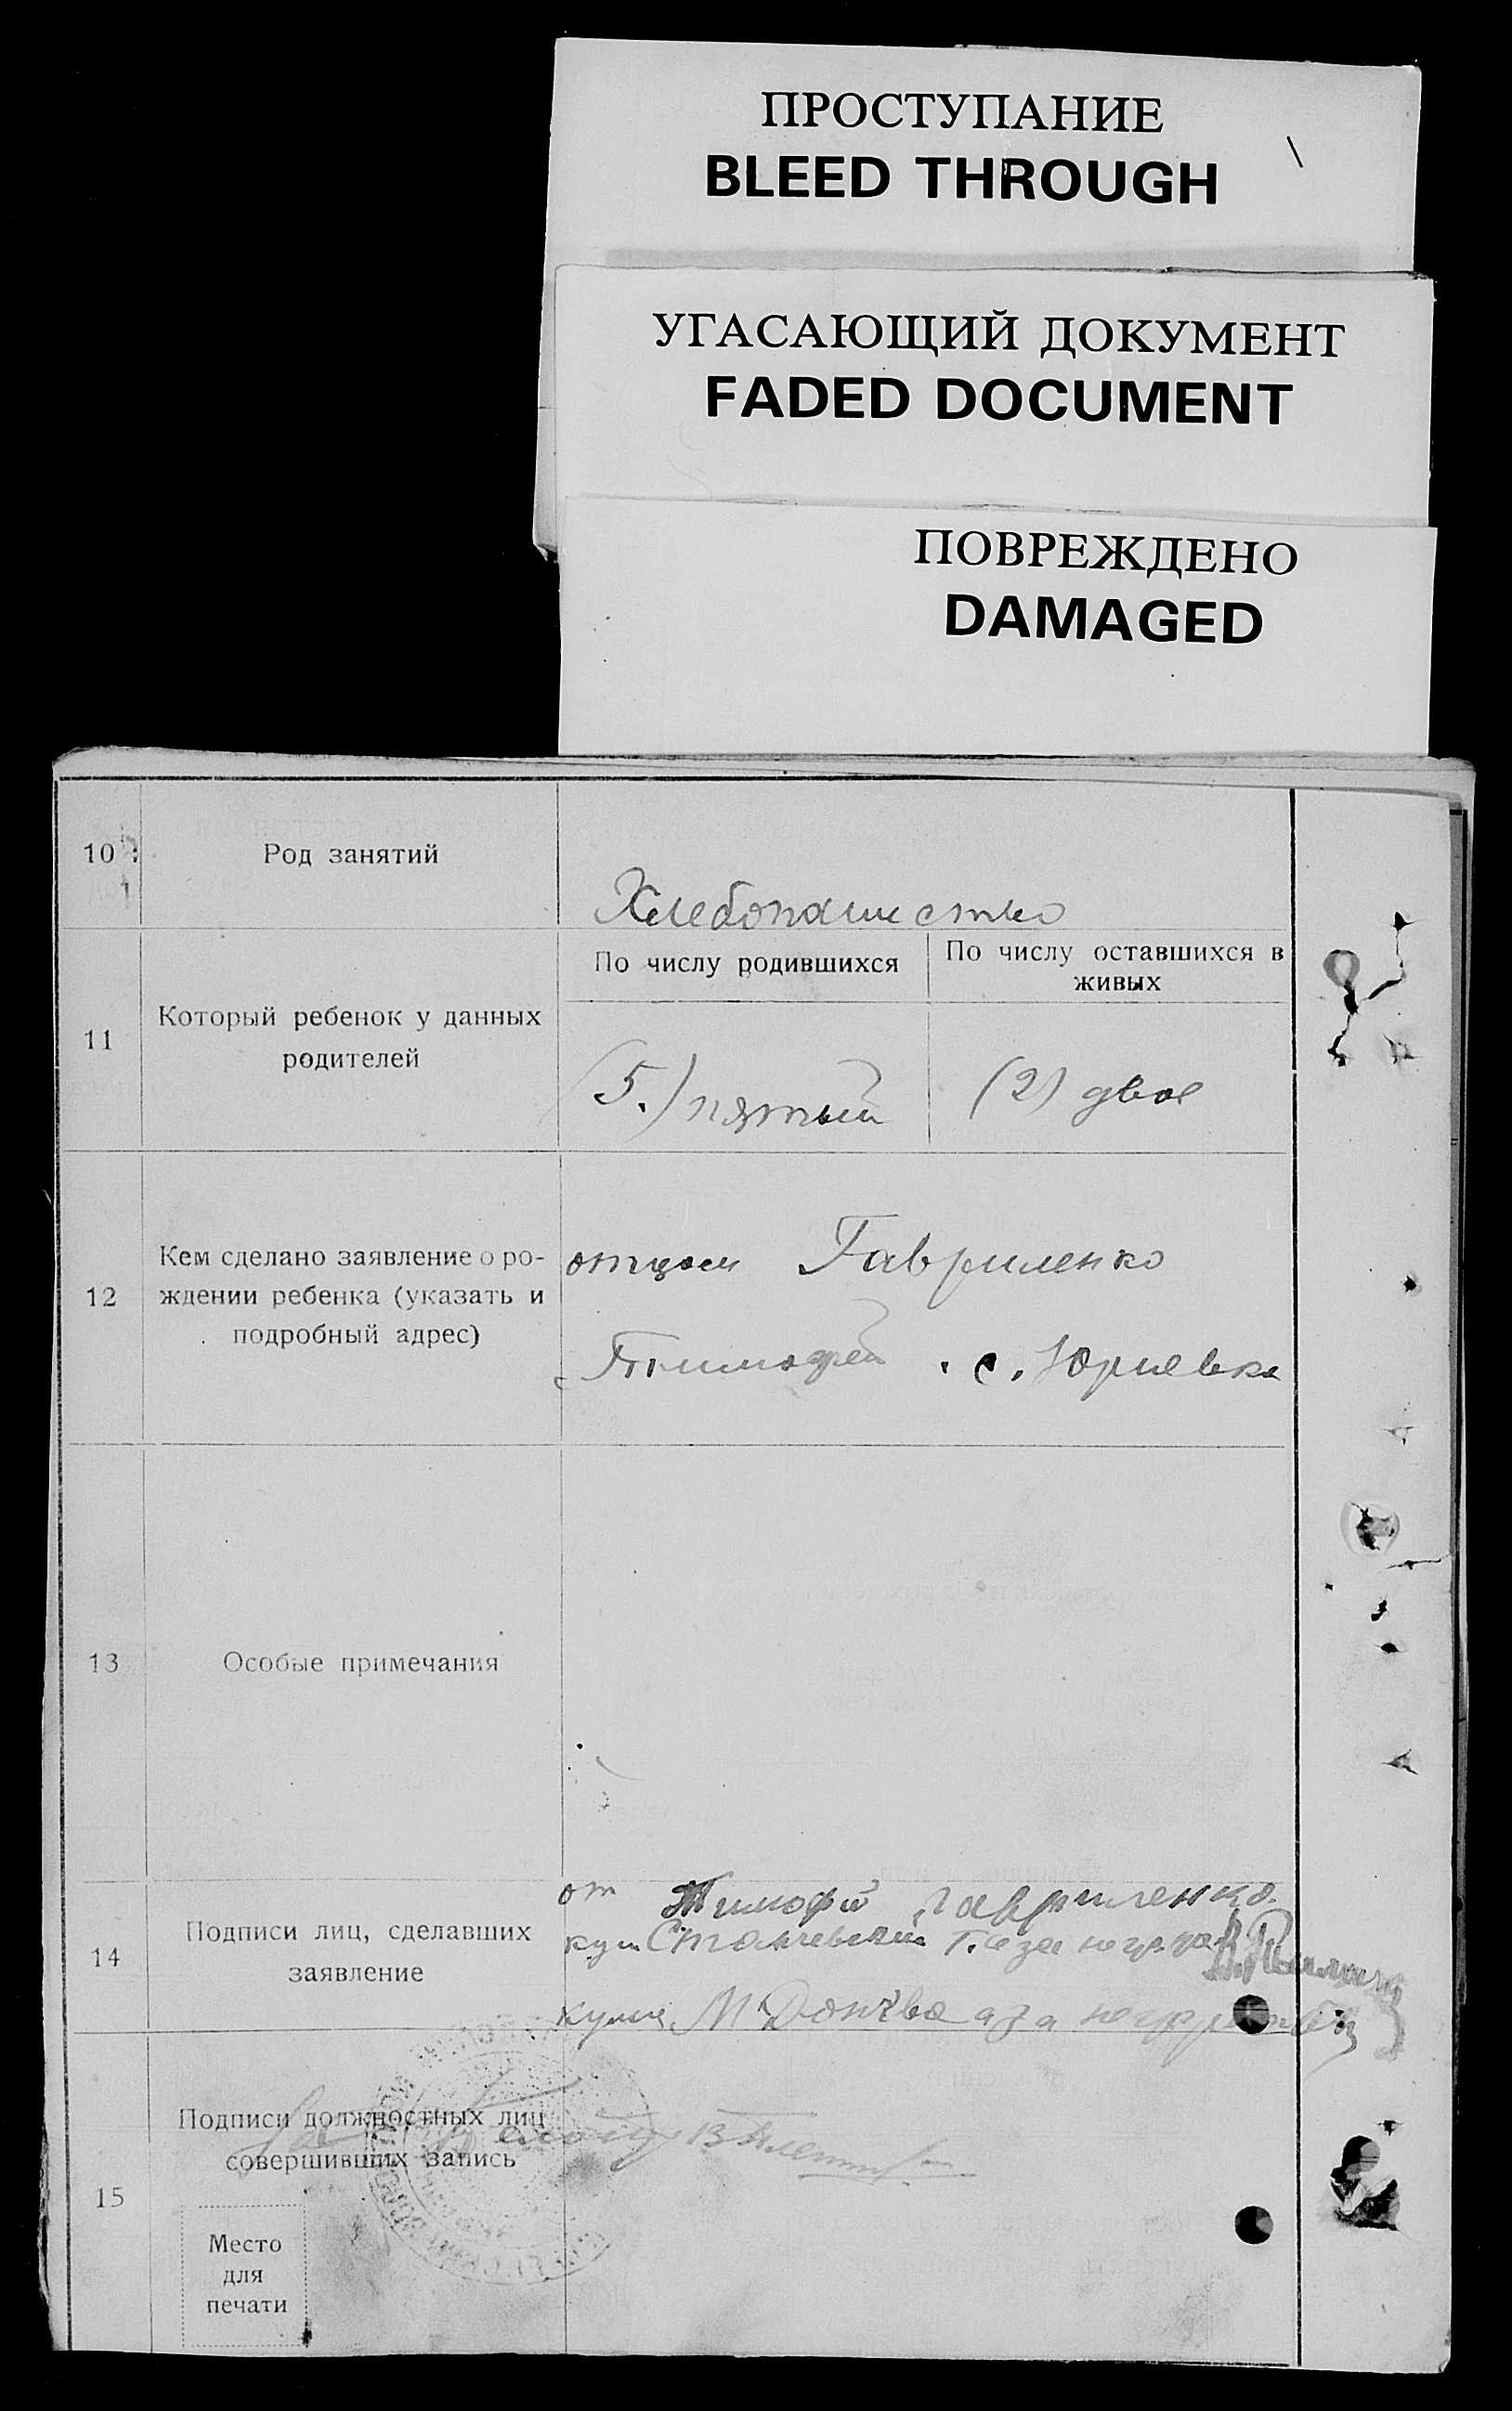 ПРОСТУПАНИЕ
BLEED THROUGH
УГАСАЮЩИЙ ДОКУМЕНТ
FADED DOCUMENT
ПОВРЕЖДЕНО
DAMAGED
10 Род занятий
Хлебопашество
По числу родившихся
По числу оставшихся в
живых
11
Который ребенок у данных
родителей
(5.) пятый
(2) двое
12
Кем сделано заявление о ро-
ждении ребенка (указать и
подробный адрес)
отцом Гавриленко
Тимофей . с. Юриевка
13
Особые примечания
14
Подписи лиц, сделавших
заявление
от Тимофей Гавриленко.
кум
кума М
15
Подписи должностных лиц
совершивших запись
Место
для
печати